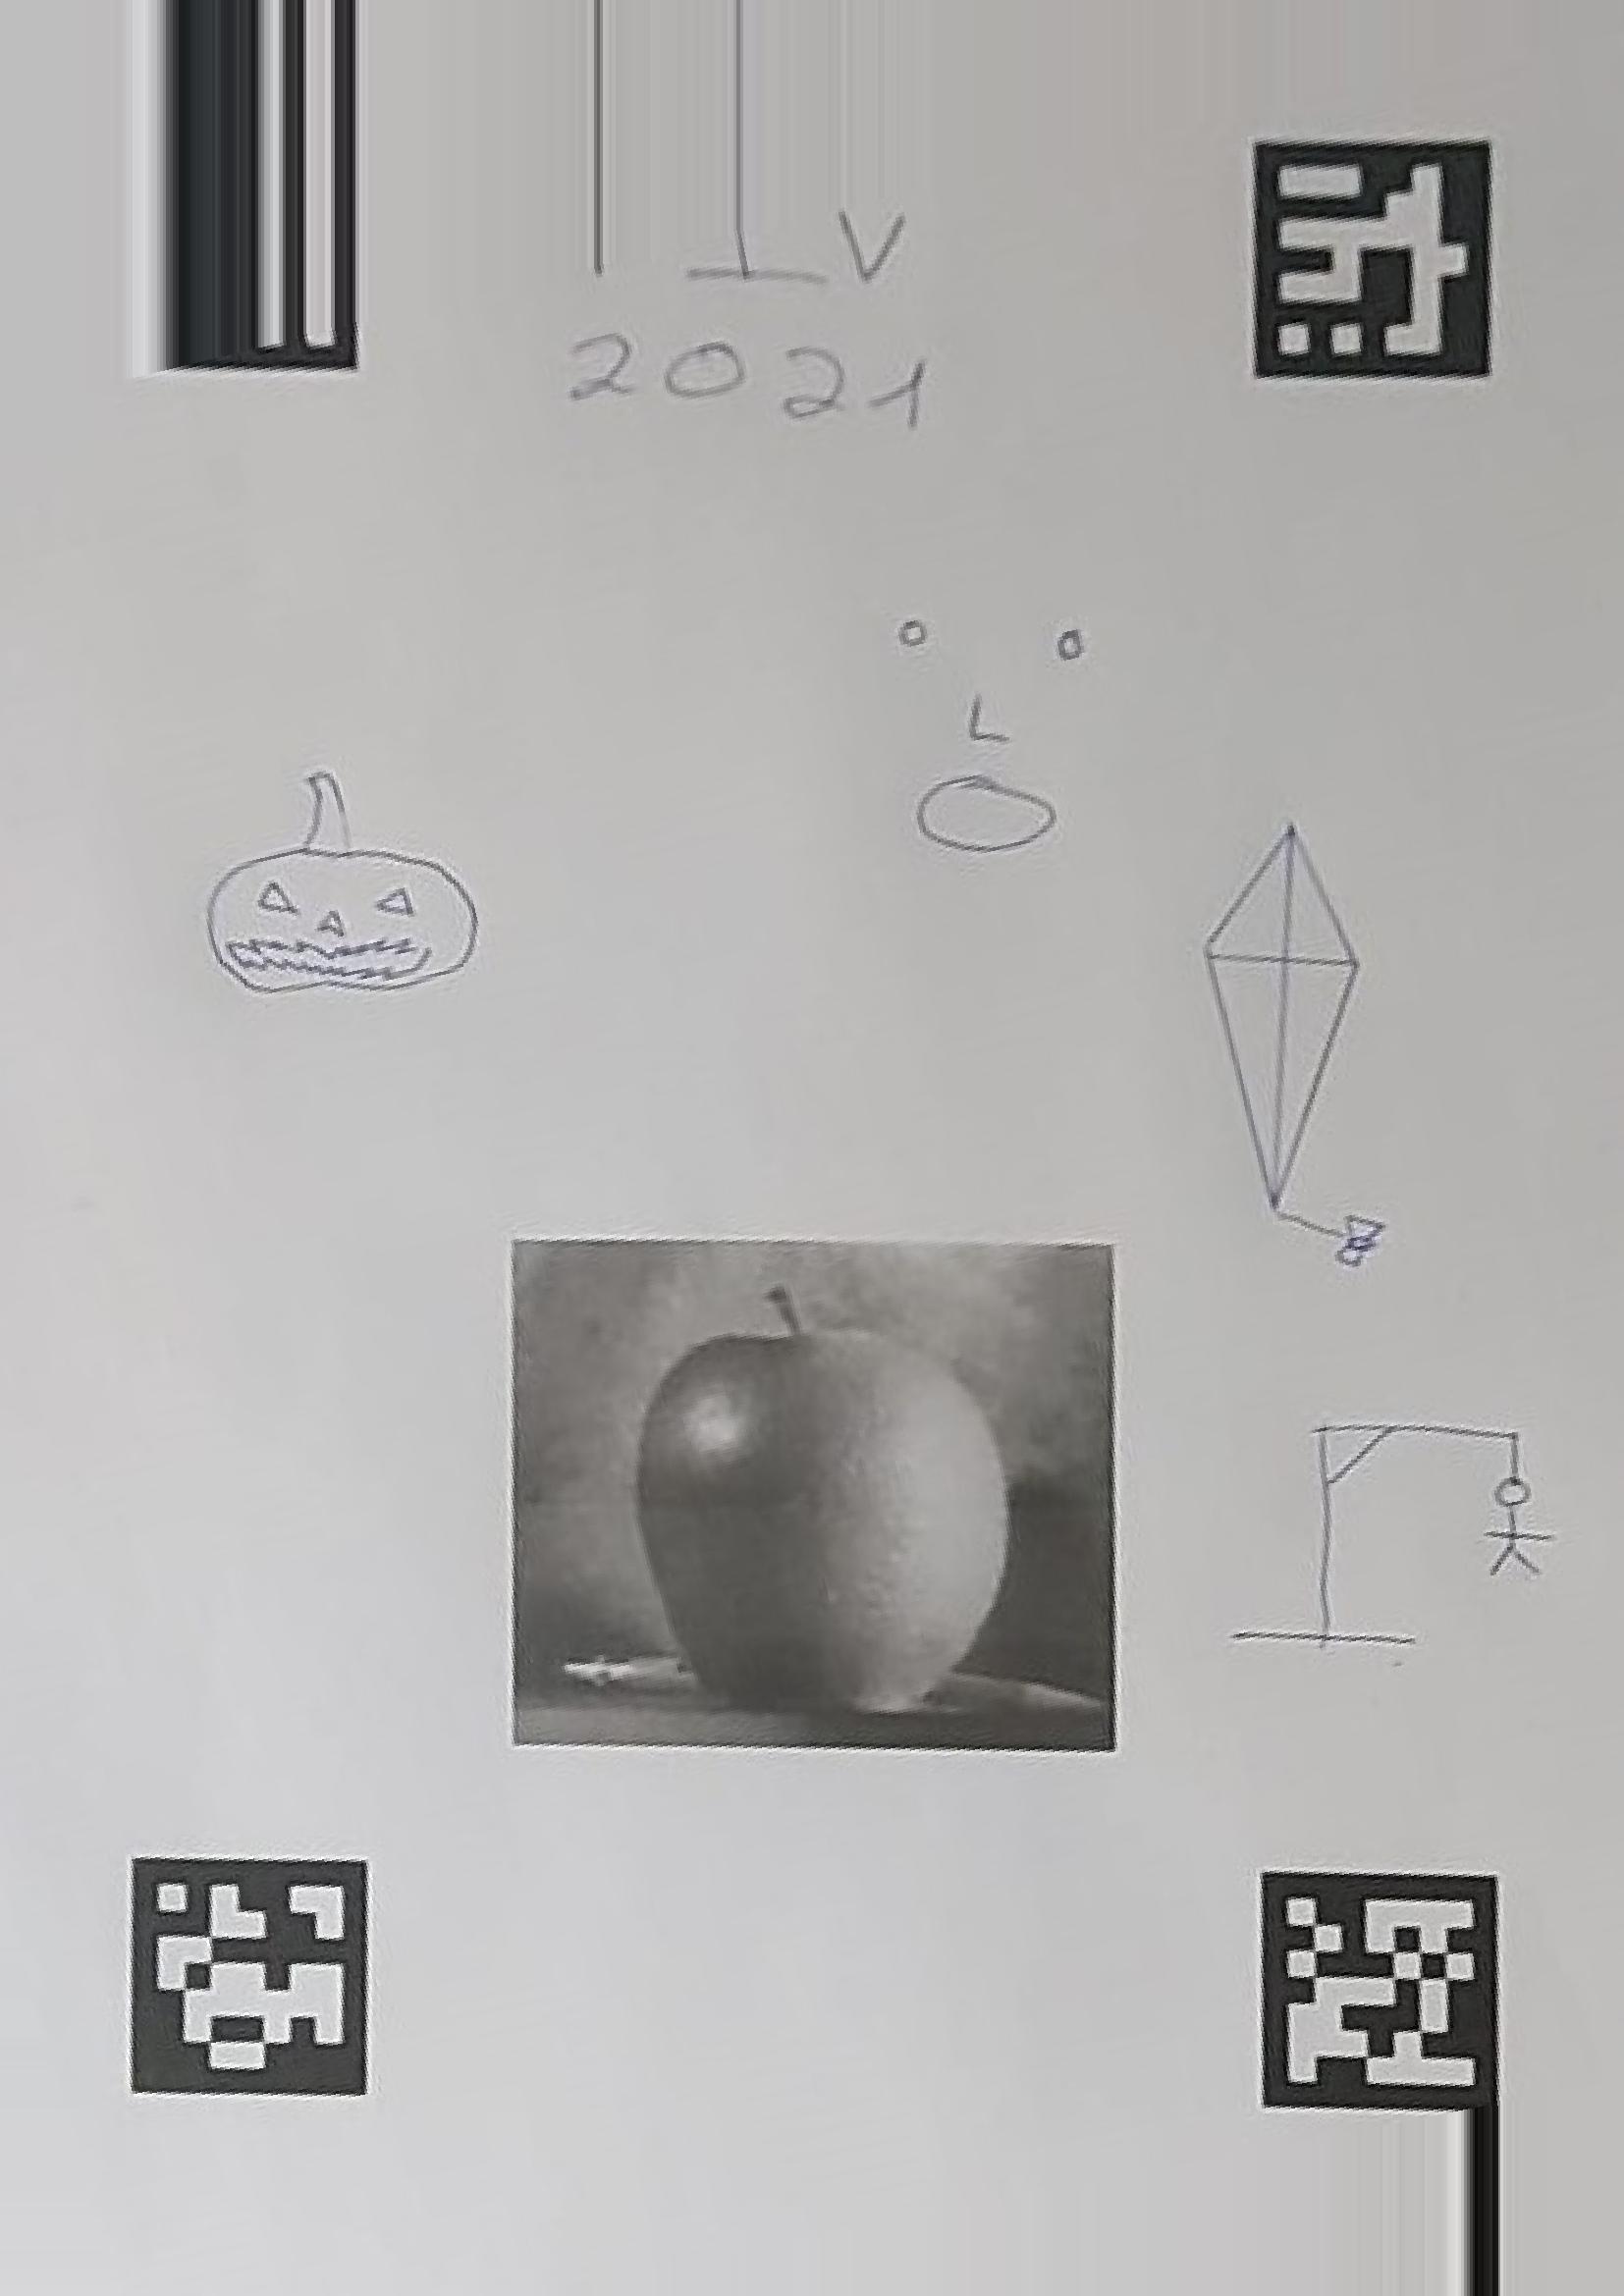 V
2021